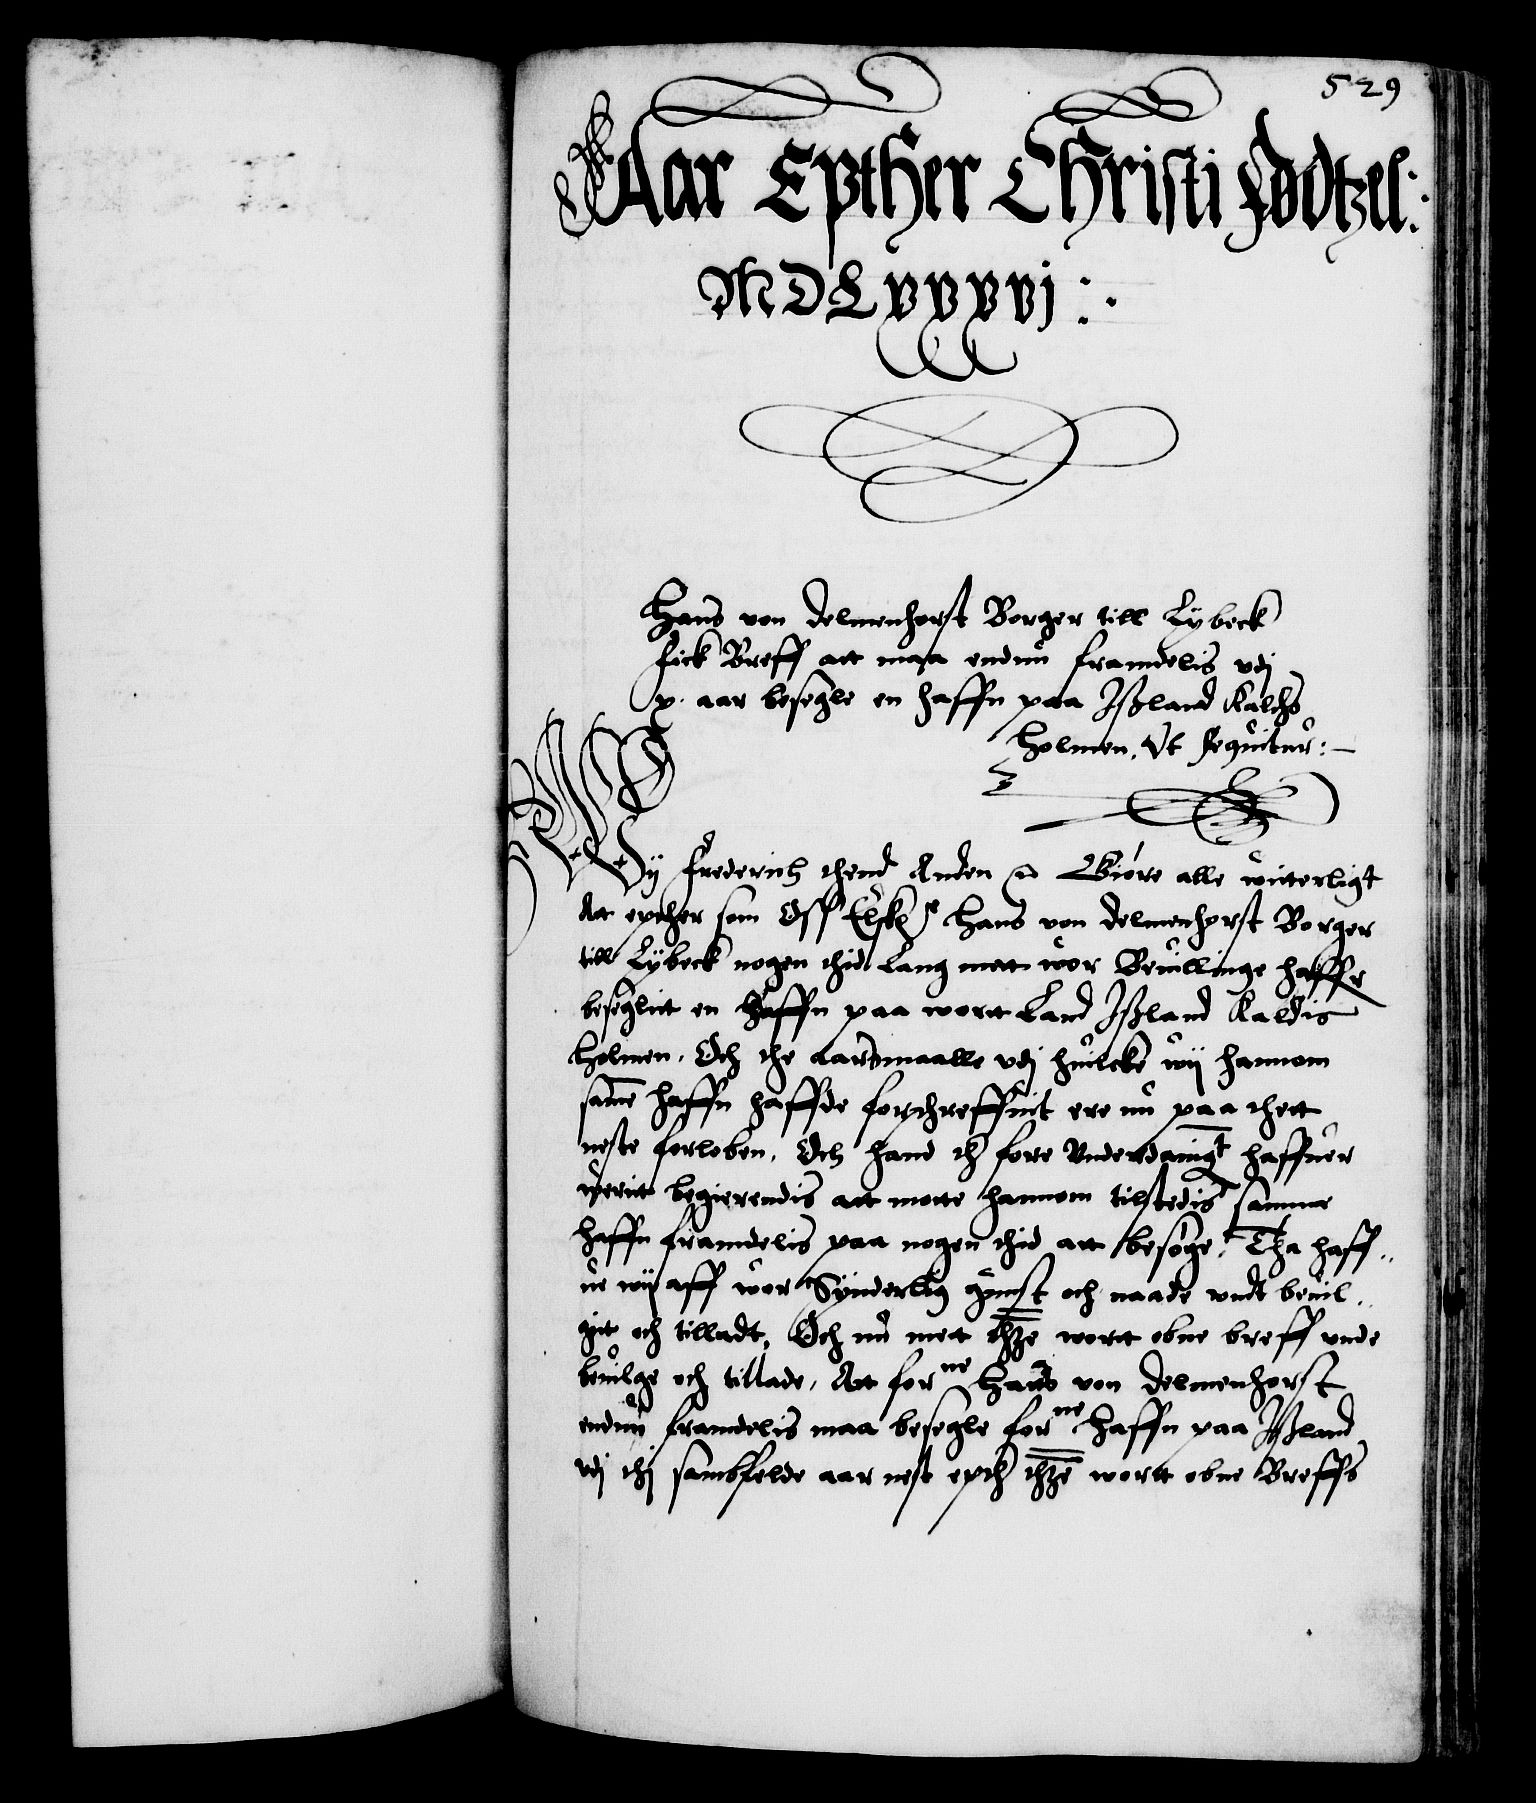 529
Aar Epther Christi Fødtzel:
MDLxxxvj:.
Hans von Delmenhorst Borger till Lybeck
fick Breff att maa endnu framdelis vdj
x. aar besegle en haffn paa Ißland Kalds
holmen. Vt sequitur:
Wij Frederich thend Anden &c Giøre alle witterligt
At epther som Oss Elske: Hans von Delmenhorst Borger
till Lybeck nogen thid lang mett wor Beuillinge haffr
besegliit en Haffn paa wortt Land Ißland Kaldis
Holmen. Och the aarsmaalle vdj huilcke wij hannom
same haffn haffde forschreffuit ere nu paa thett
neste forløben. Och hand th fore Underdanigt haffuer
werit begierendis att motte hannom tilstedis samme
haffn framdelis paa nogen thid att besøge. Tha haff..
ue wij aff wor Synderlig gunst och naade undt beuil..
git och tilladt, Och nu mett thze wortt obne breff unde
beuilge och tillade, At forne Hans von Delmenhorst
endnu framdelis maa besegle forne haffn paa Ißland
vdj thj sambfelde aar nest epth thze wortt obne Breffs